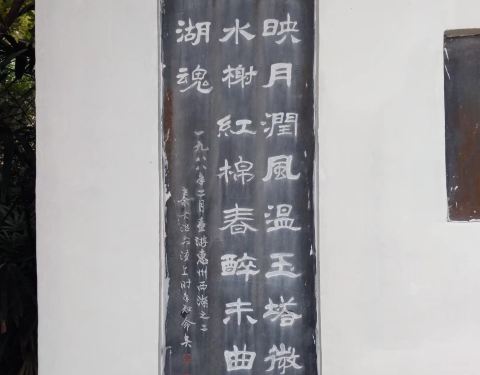 映月潤風温玉塔微
水榭紅棉春醉未曲
湖魂
一九八八年二月壷游惠州西湖之二